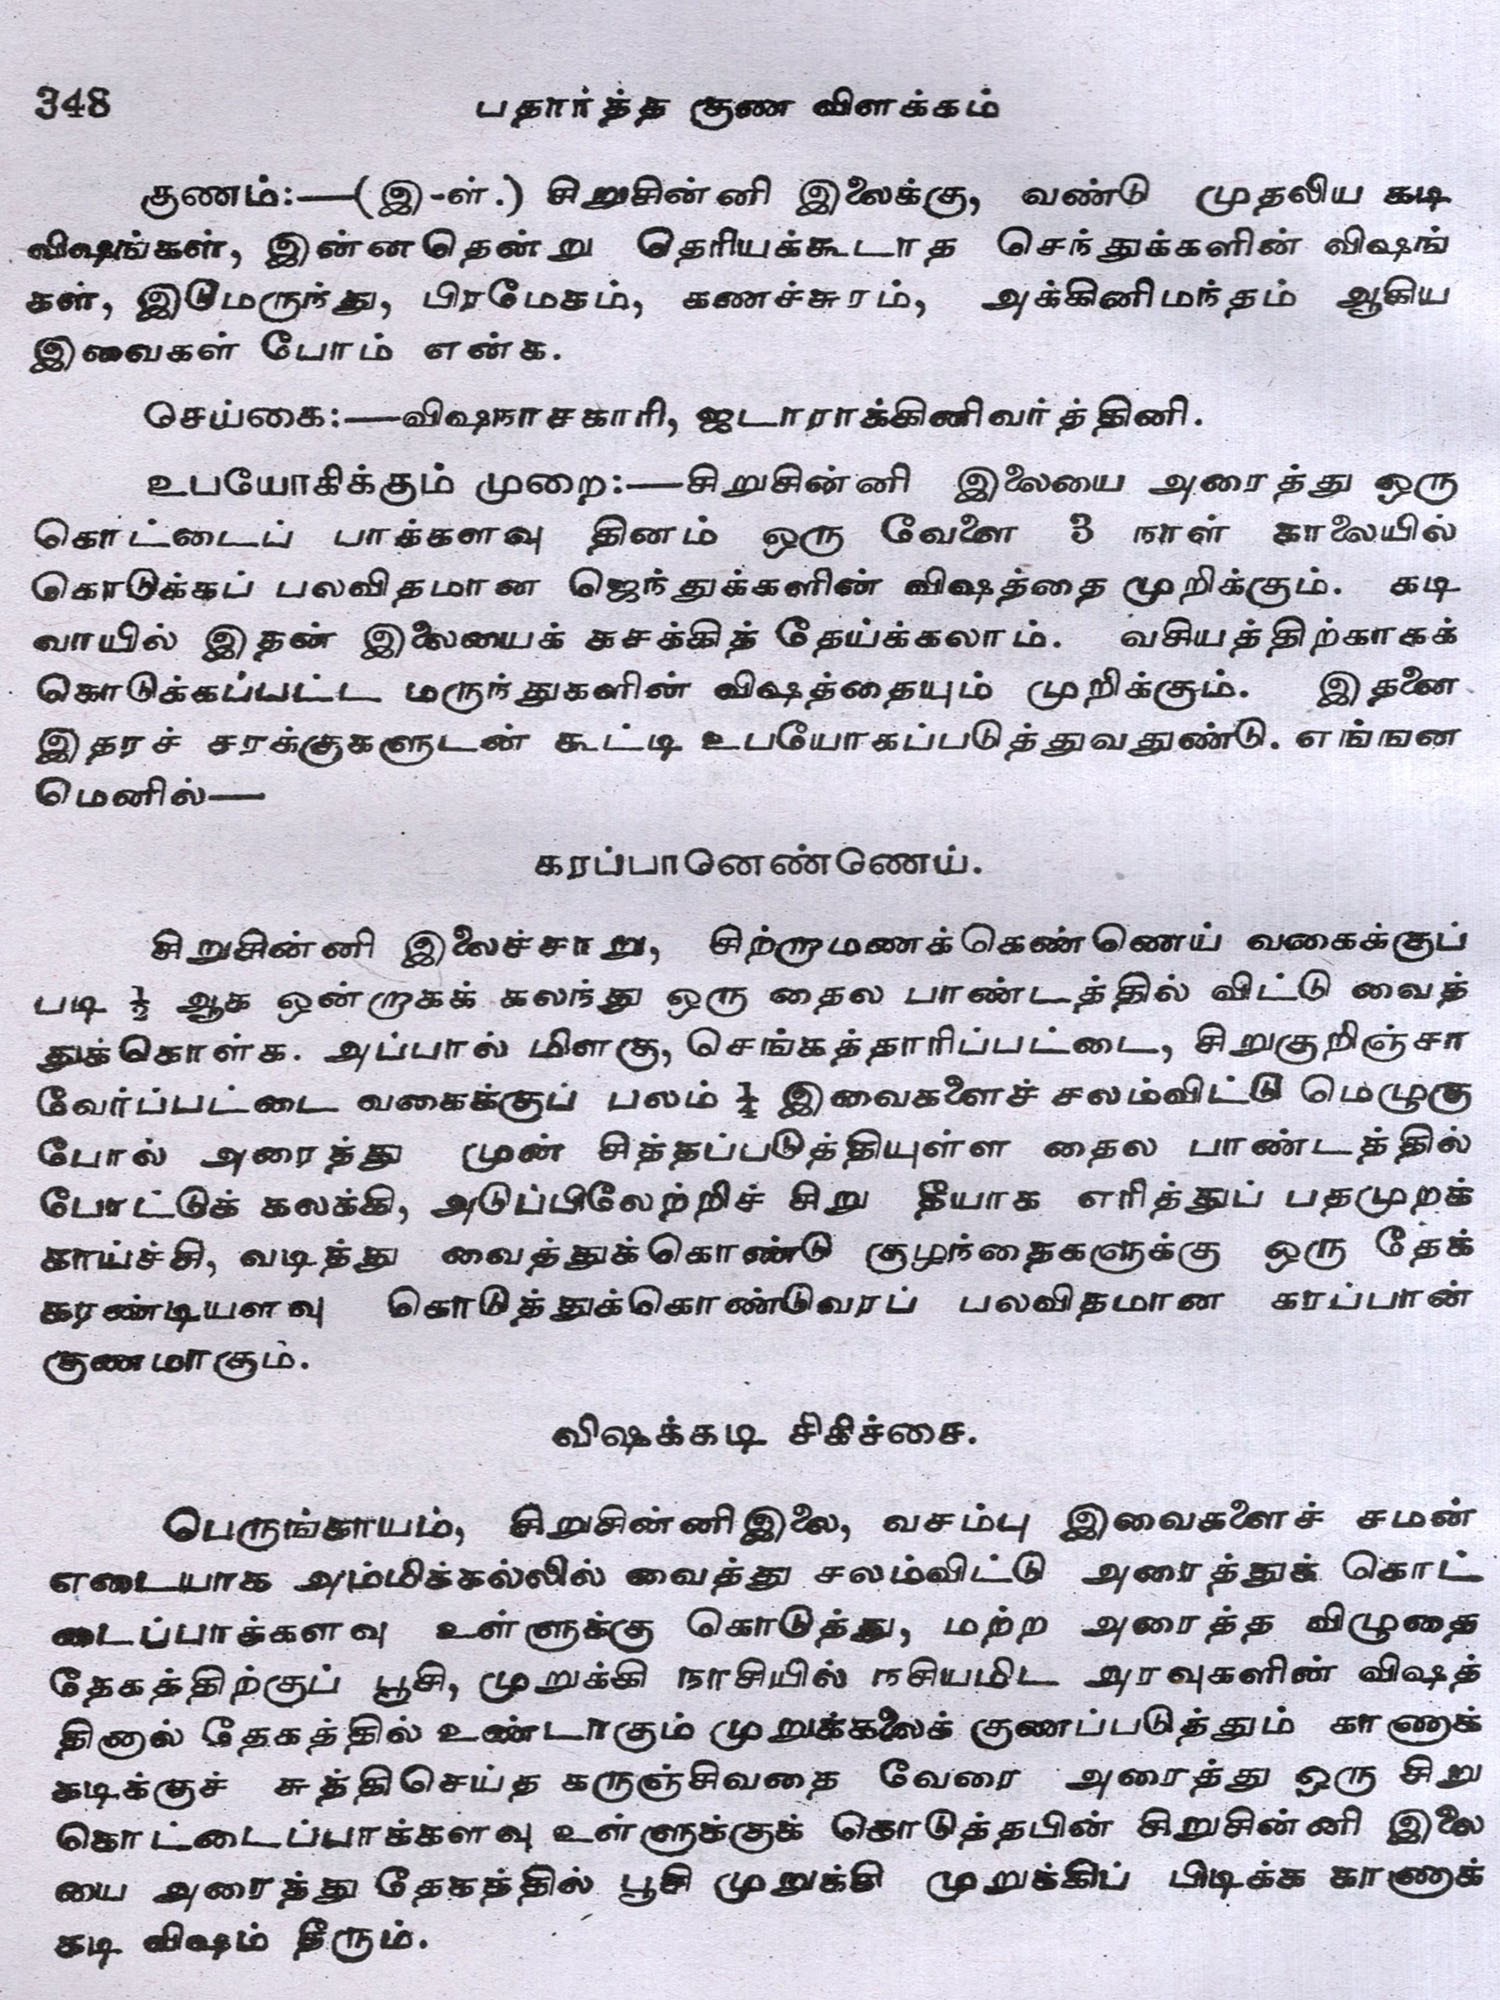 348 பதார்த்த குண விளக்கம்
குணம்:—(இ-ள்.) சிறுசின்னி இலைக்கு, வண்டு முதலிய கடி
விஷங்கள், இன்னதென்று தெரியக்கூடாத செந்துக்களின் விஷங்
கள், இடுமருந்து, பிரமேகம், கணச்சுரம், அக்கினிமந்தம் ஆகிய
இவைகள் போம் என்க.
செய்கை:—விஷநாசகாரி, ஜடாராக்கினிவர்த்தினி.
உபயோகிக்கும் முறை:—சிறுசின்னி இலையை அரைத்து ஒரு
கொட்டைப் பாக்களவு தினம் ஒரு வேளை 3 நாள் காலையில்
கொடுக்கப் பலவிதமான ஜெந்துக்களின் விஷத்தை முறிக்கும். கடி
வாயில் இதன் இலையைக் கசக்கித் தேய்க்கலாம். வசியத்திற்காகக்
கொடுக்கப்பட்ட மருந்துகளின் விஷத்தையும் முறிக்கும். இதனை
இதரச் சரக்குகளுடன் கூட்டி உபயோகப்படுத்துவதுண்டு. எங்ஙன
மெனில்—
கரப்பானெண்ணெய்.
சிறுசின்னி இலைச்சாறு, சிற்றாமணக்கெண்ணெய் வகைக்குப்
படி ½ ஆக ஒன்றாகக் கலந்து ஒரு தைல பாண்டத்தில் விட்டு வைத்
துக்கொள்க. அப்பால் மிளகு, செங்கத்தாரிப்பட்டை, சிறுகுறிஞ்சா
வேர்ப்பட்டை வகைக்குப் பலம் ¼ இவைகளைச் சலம்விட்டு மெழுகு
போல் அரைத்து முன் சித்தப்படுத்தியுள்ள தைல பாண்டத்தில்
போட்டுக் கலக்கி, அடுப்பிலேற்றிச் சிறு தீயாக எரித்துப் பதமுறக்
காய்ச்சி, வடித்து வைத்துக்கொண்டு குழந்தைகளுக்கு ஒரு தேக்
கரண்டியளவு கொடுத்துக்கொண்டுவரப் பலவிதமான கரப்பான்
குணமாகும்.
விஷக்கடி சிகிச்சை.
பெருங்காயம், சிறுசின்னிஇலை, வசம்பு இவைகளைச் சமன்
எடையாக அம்மிக்கல்லில் வைத்து சலம்விட்டு அரைத்துக் கொட்
டைப்பாக்களவு உள்ளுக்கு கொடுத்து, மற்ற அரைத்த விழுதை
தேகத்திற்குப் பூசி, முறுக்கி நாசியில் நசியமிட அரவுகளின் விஷத்
தினால் தேகத்தில் உண்டாகும் முறுக்கலைக் குணப்படுத்தும் காணாக்
கடிக்குச் சுத்திசெய்த கருஞ்சிவதை வேரை அரைத்து ஒரு சிறு
கொட்டைப்பாக்களவு உள்ளுக்குக் கொடுத்தபின் சிறுசின்னி இலை
யை அரைத்து தேகத்தில் பூசி முறுக்கி முறுக்கிப் பிடிக்க காணாக்
கடி விஷம் தீரும்.